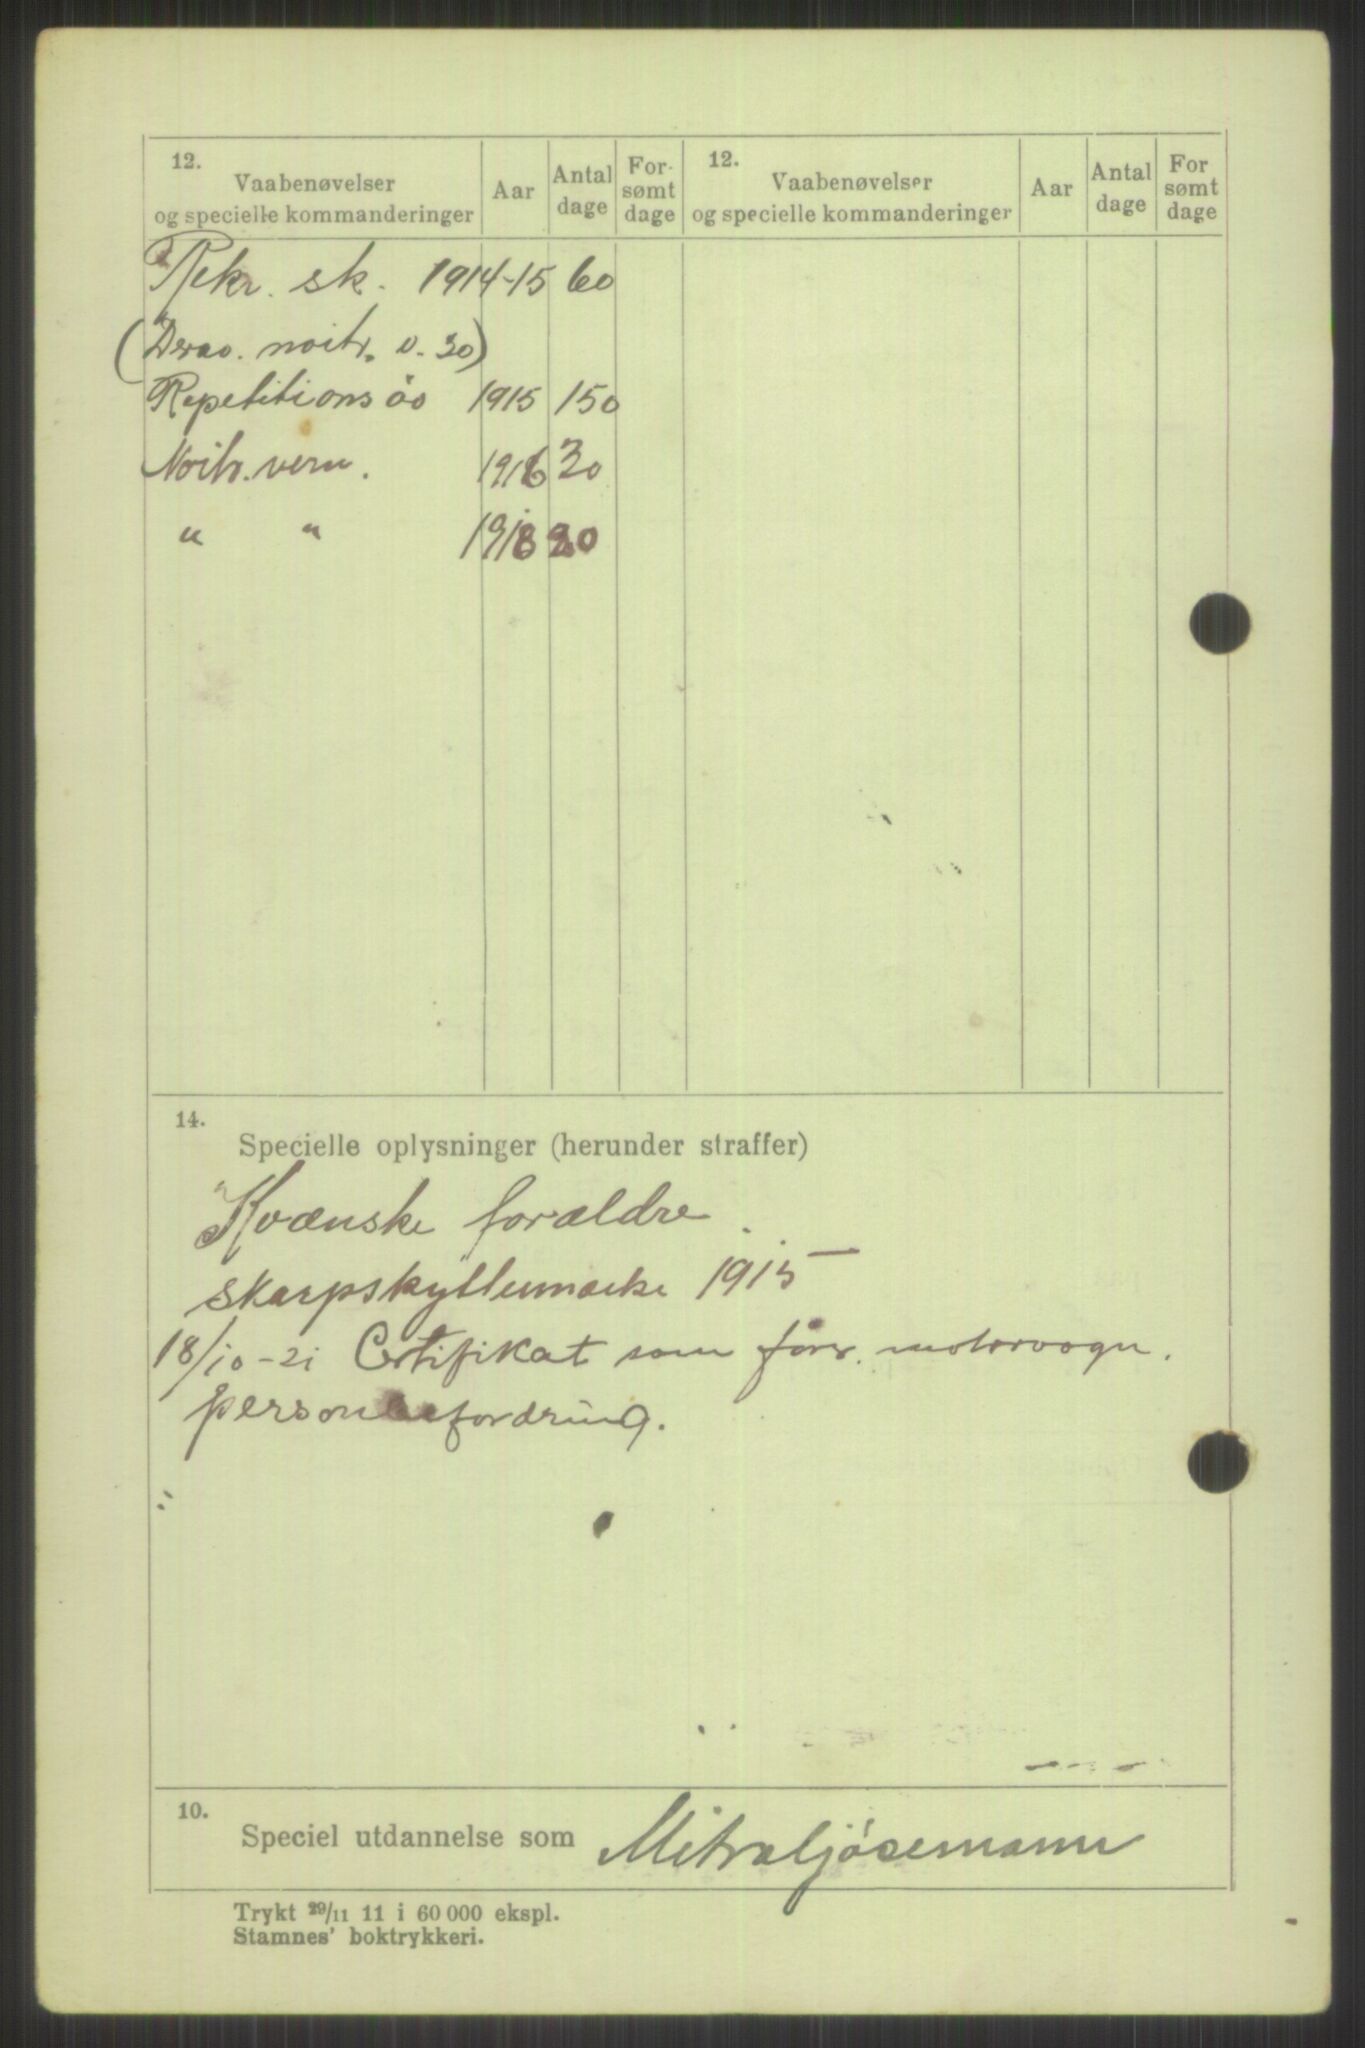 12.
Vaabenøvelser
og specielle kommanderinger
Aar
Antal
dage
For-
sømt
dage
12.
Vaabenøvelser
og specielle kommanderinger
Aar
Antal
dage
For
sømt
dage
Rekr. sk. 1914-15 60
(Derav. nøitr. v. 30)
Repetitionsöv 1915 150
Nøitr. vern. 1916 30
" " 1918
14.
Specielle oplysninger (herunder straffer)
Kvænske forældre
skarpskyttermerke 1915
18/10-21 Certifikat som förer. motorvogn.
personbefordring.
10.
Speciel utdannelse som Mitraljösemann
Trykt 29/11 11 i 60 000 ekspl.
Stamnes' boktrykkeri.